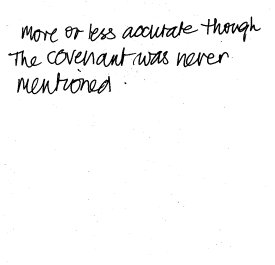 More or less accurate though
The covenant was never
mentioned.